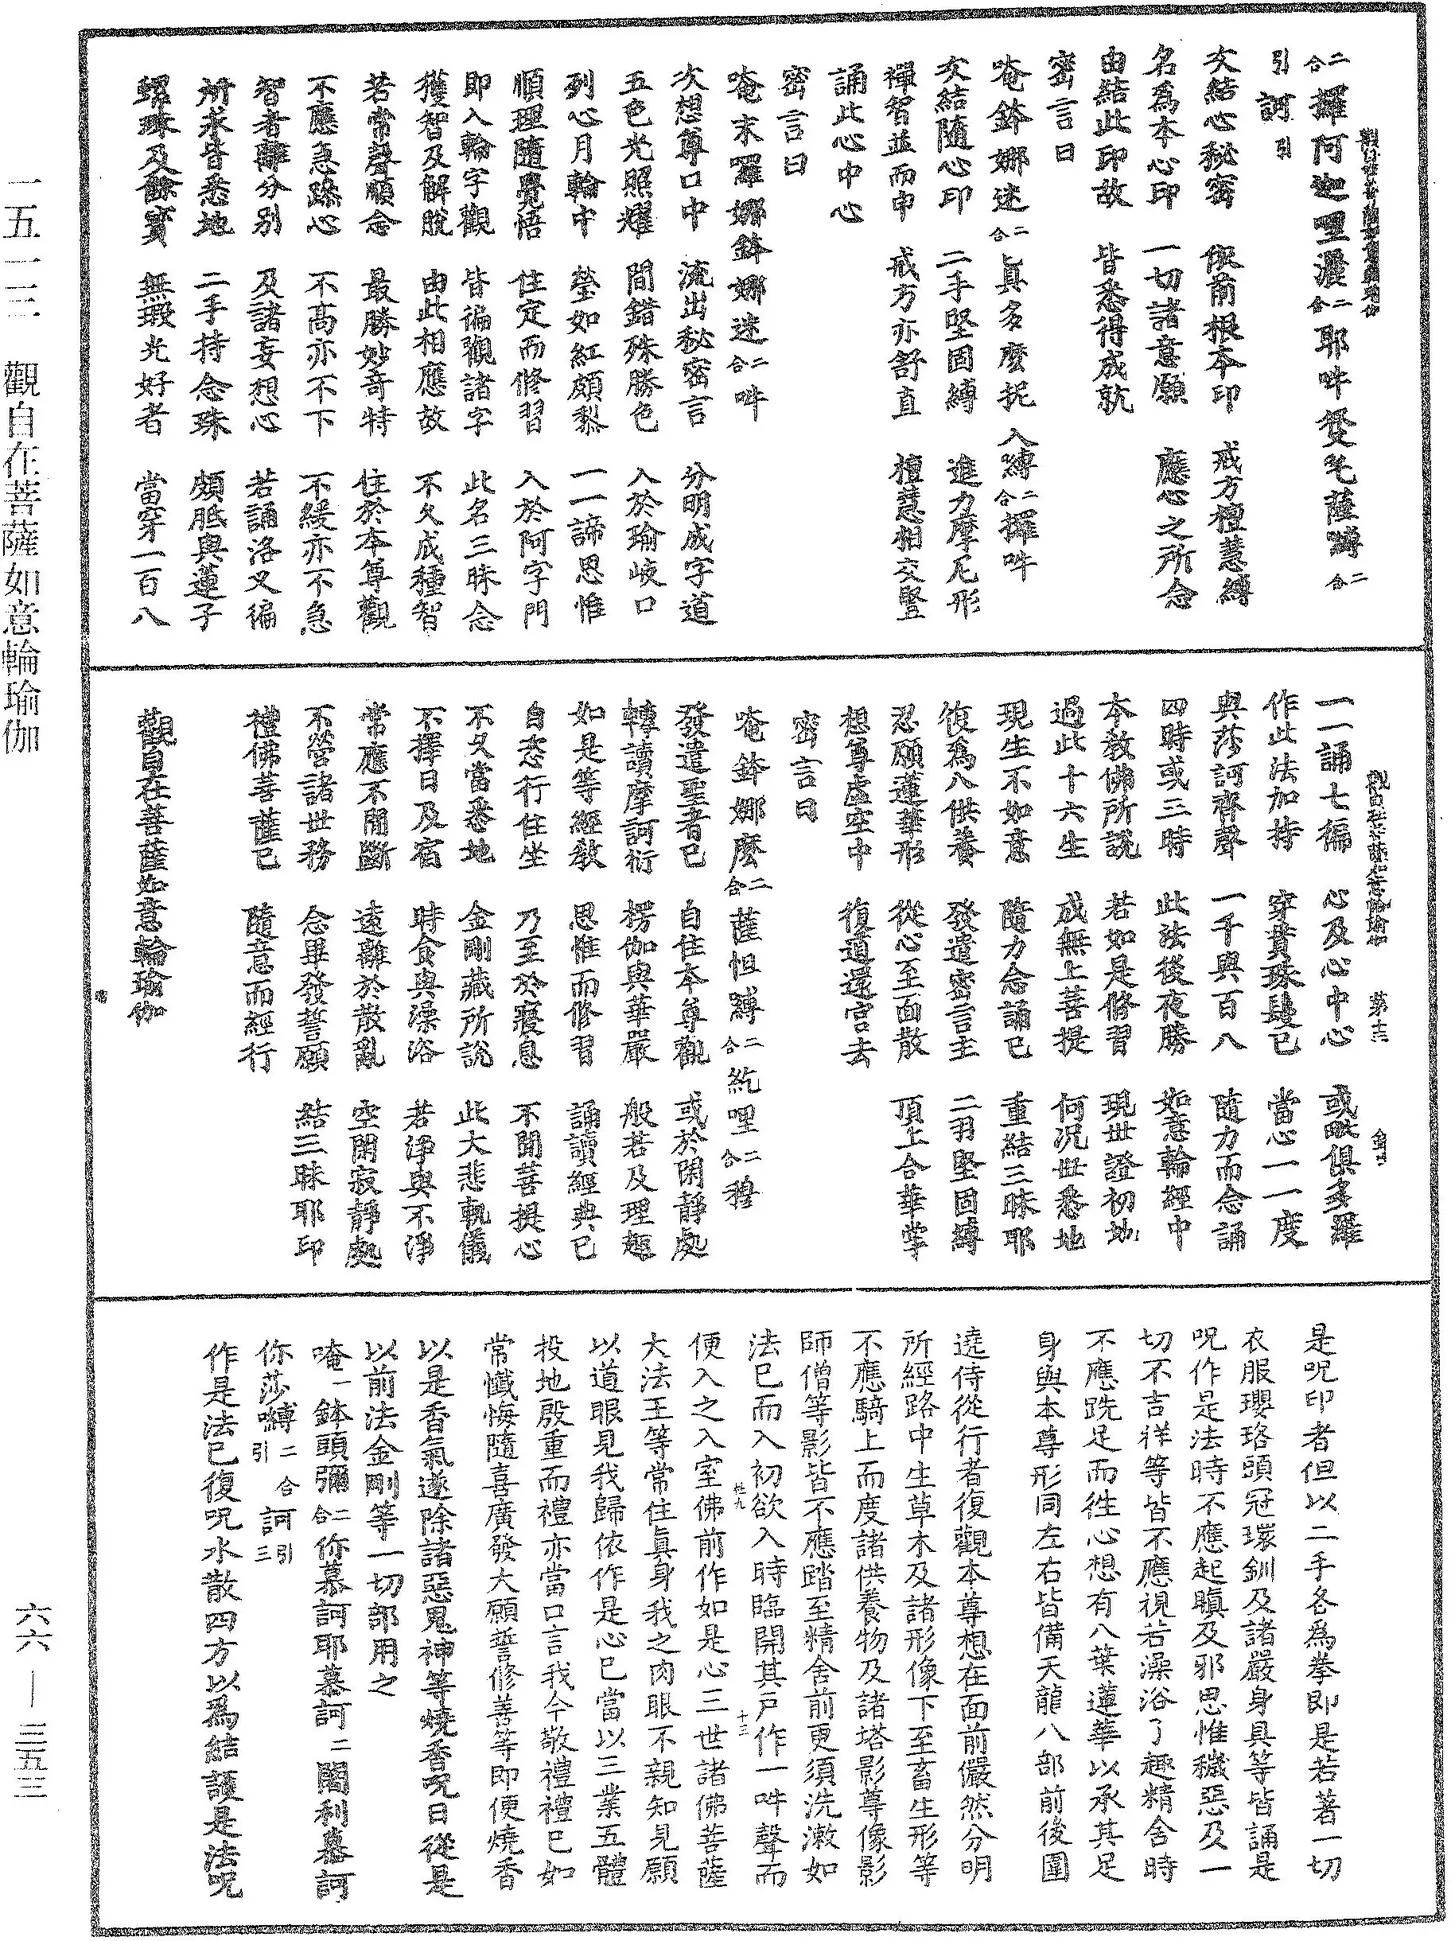 二合攞阿迦哩灑二合耶吽癹吒薩嚩二合
引訶引
次結心秘密　依前根本印　戒方檀慧縛
名爲本心印　一切諸意願　應心之所念
由結此印故　皆悉得成就
密言曰
唵鉢娜迷二合眞多麽抳入嚩二合攞吽
次結隨心印　二手堅固縛　進力摩尼形
禪智並而申　戒方亦舒直　檀慧相交竪
誦此心中心
密言曰
唵末羅娜鉢娜迷二合吽
次想尊口中　流出秘密言　分明成字道
五色光照耀　間錯殊勝色　入於瑜岐口
列心月輪中　瑩如紅頗黎　一一諦思惟
順理隨覺悟　住定而修習　入於阿字門
即入輪字觀　皆徧觀諸字　此名三昧念
獲智及解脫　由此相應故　不久成種智
若常聲順念　最勝妙奇特　住於本尊觀
不應急躁心　不高亦不下　不緩亦不急
智者離分別　及諸妄想心　若誦洛叉徧
所求皆悉地　二手持念珠　頗胝與蓮子
螺珠及餘寳　無瑕光好者　當穿一百八
一一誦七徧　心及心中心　或毗俱多羅
作此法加持　穿貫珠鬘已　當心一一度
與莎訶齊聲　一千與百八　隨力而念誦
四時或三時　此法後夜勝　如意輪經中
本敎佛所說　若如是修習　現世證初地
過此十六生　成無上菩提　何况世悉地
現生不如意　隨力念誦已　重結三昧耶
復爲八供養　發遣密言主　二羽堅固縛
忍願蓮華形　從心至面散　頂上合華掌
想尊虚空中　復道還宮去
密言曰
唵鉢娜麽二合薩怛嚩二合紇哩二合穆
發遣聖者已　自住本尊觀　或於閑靜處
轉讀摩訶衍　楞伽與華嚴　般若及理趣
如是等經敎　思惟而修習　誦讀經典已
自恣行住坐　乃至於寢息　不間菩提心
不久當悉地　金剛藏所說　此大悲軌儀
不擇日及宿　時食與澡浴　若淨與不淨
常應不間斷　遠離於散亂　空閑寂靜處
不營諸世務　念畢發誓願　結三昧耶印
禮佛菩薩已　隨意而經行
觀自在菩薩如意輪瑜伽
是呪印者但以二手各爲拳即是若著一切
衣服瓔珞頭冠環釧及諸嚴身具等皆誦是
呪作是法時不應起瞋及邪思惟穢惡及一
切不吉祥等皆不應視若澡浴了趣精舍時
不應跣足而徃心想有八葉蓮華以承其足
身與本尊形同左右皆備天龍八部前後圍
遶侍從行者復觀本尊想在面前儼然分明
所經路中生草木及諸形像下至畜生形等
不應騎上而度諸供養物及諸塔影尊像影
師僧等影皆不應踏至精舍前更須洗漱如
法已而入初欲入時臨開其戶作一吽聲而
便入之入室佛前作如是心三世諸佛菩薩
大法王等常住眞身我之肉眼不親知見願
以道眼見我歸依作是心已當以三業五體
投地殷重而禮亦當口言我今敬禮禮已如
常懺悔隨喜廣發大願誓修善等即便燒香
以是香氣遂除諸惡鬼神等燒香呪曰從是
以前法金剛等一切部用之
唵一鉢頭彌二合你慕訶耶慕訶二闍利慕訶
你莎嚩二合引訶引三
作是法已復呪水散四方以爲結護是法呪
二五一三　觀自在菩薩如意輪瑜伽
六六—三五三